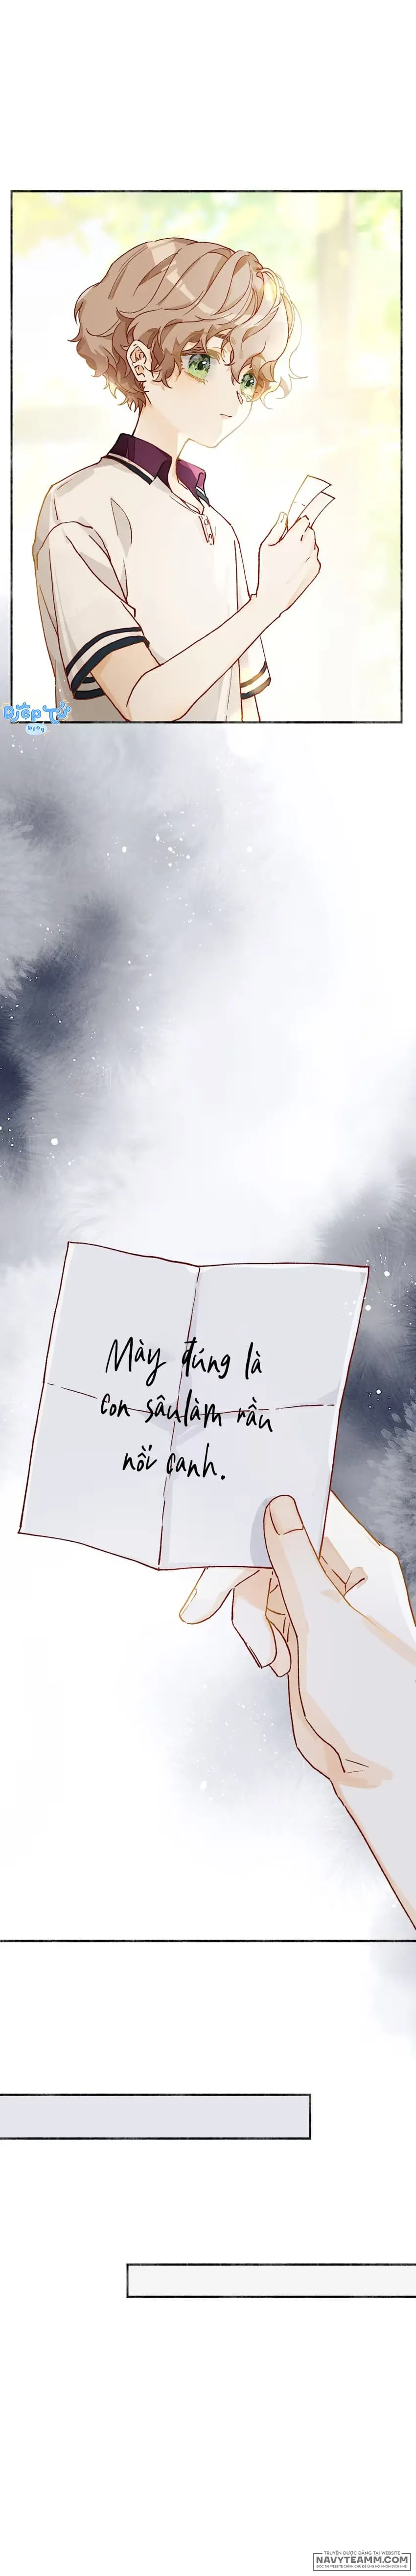 Diệp Tử
blog
Mày đúng là
con sâu làm rầu
nồi canh.
TRUYỆN ĐƯỢC ĐĂNG TẠI WEBSITE
NAVYTEAMM.COM